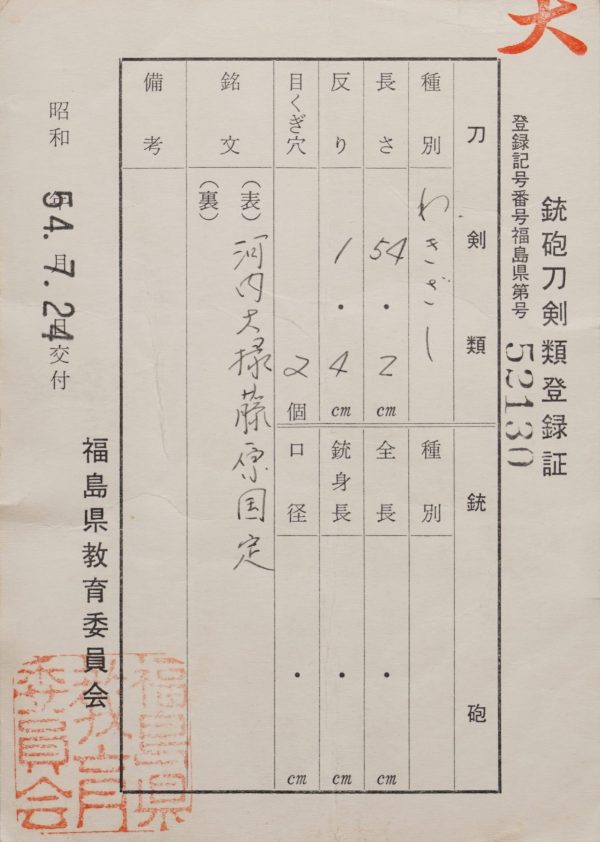 大
銃砲刀剣類登録証
登録記号番号福島県第号 52130
刀剣類
種別 わきざし
長さ 54・2cm
反り 1・4cm
目くぎ穴 2個
銘文
(表) 河内大掾藤原国定
(裏)
備考
銃砲
種別
全長 ・cm
銃身長 ・cm
口径 ・cm
昭和 54年7月24日交付
54.7.24
福島県教育委員会
福島県
教育
委員会